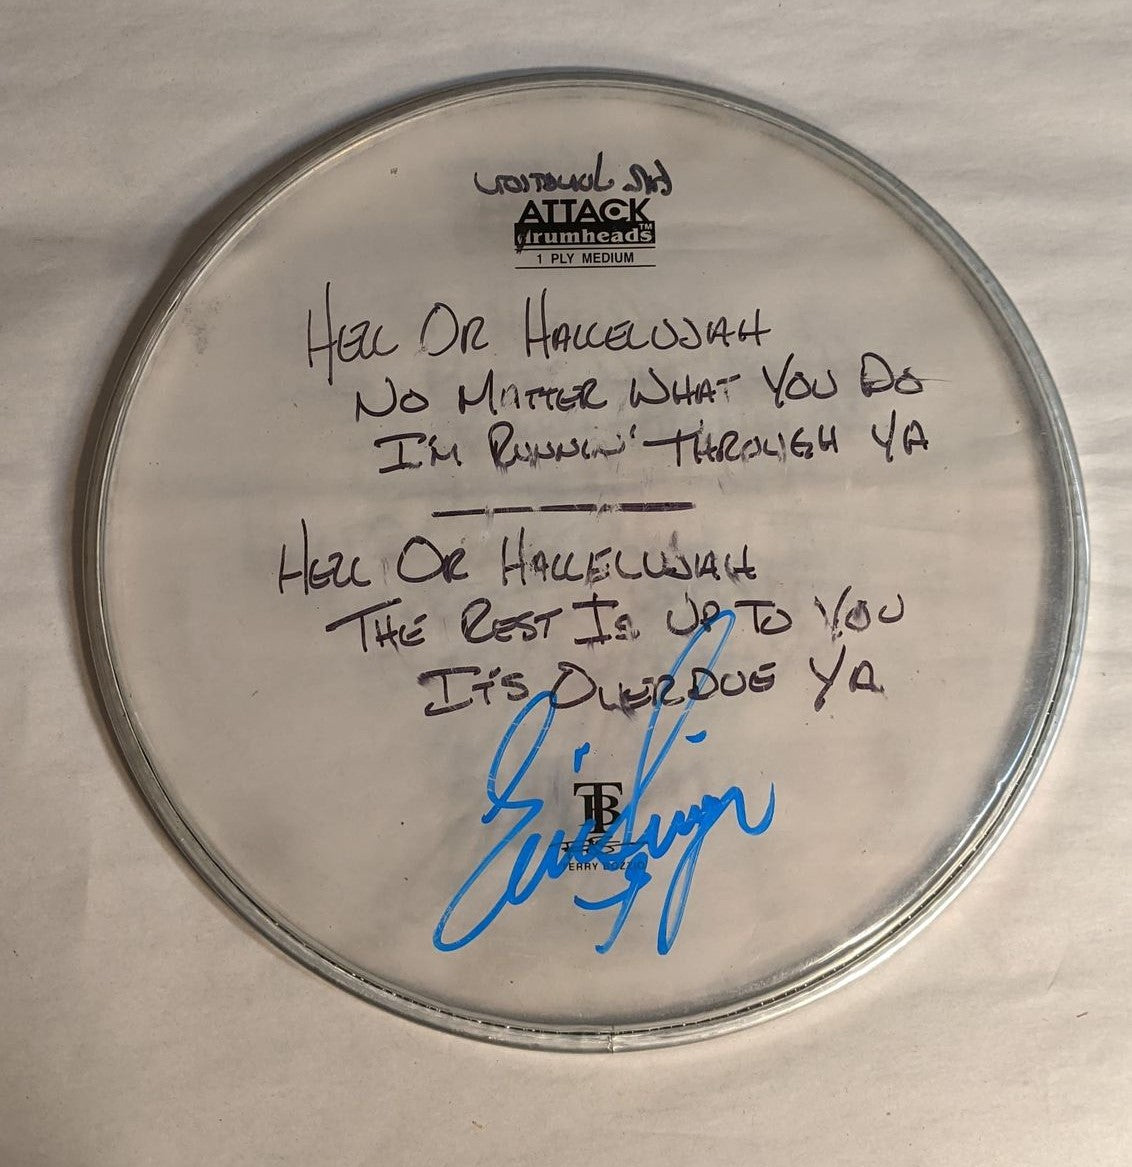 ATTACK™
drumheads
1 PLY MEDIUM
HELL OR HALLELUJAH
NO MATTER WHAT YOU DO
I'M RUNNIN' THROUGH YA
HELL OR HALLELUJAH
THE REST IS UP TO YOU
IT'S OVERDUE YA
Eric Singer
TB
TERRY BOZZIO